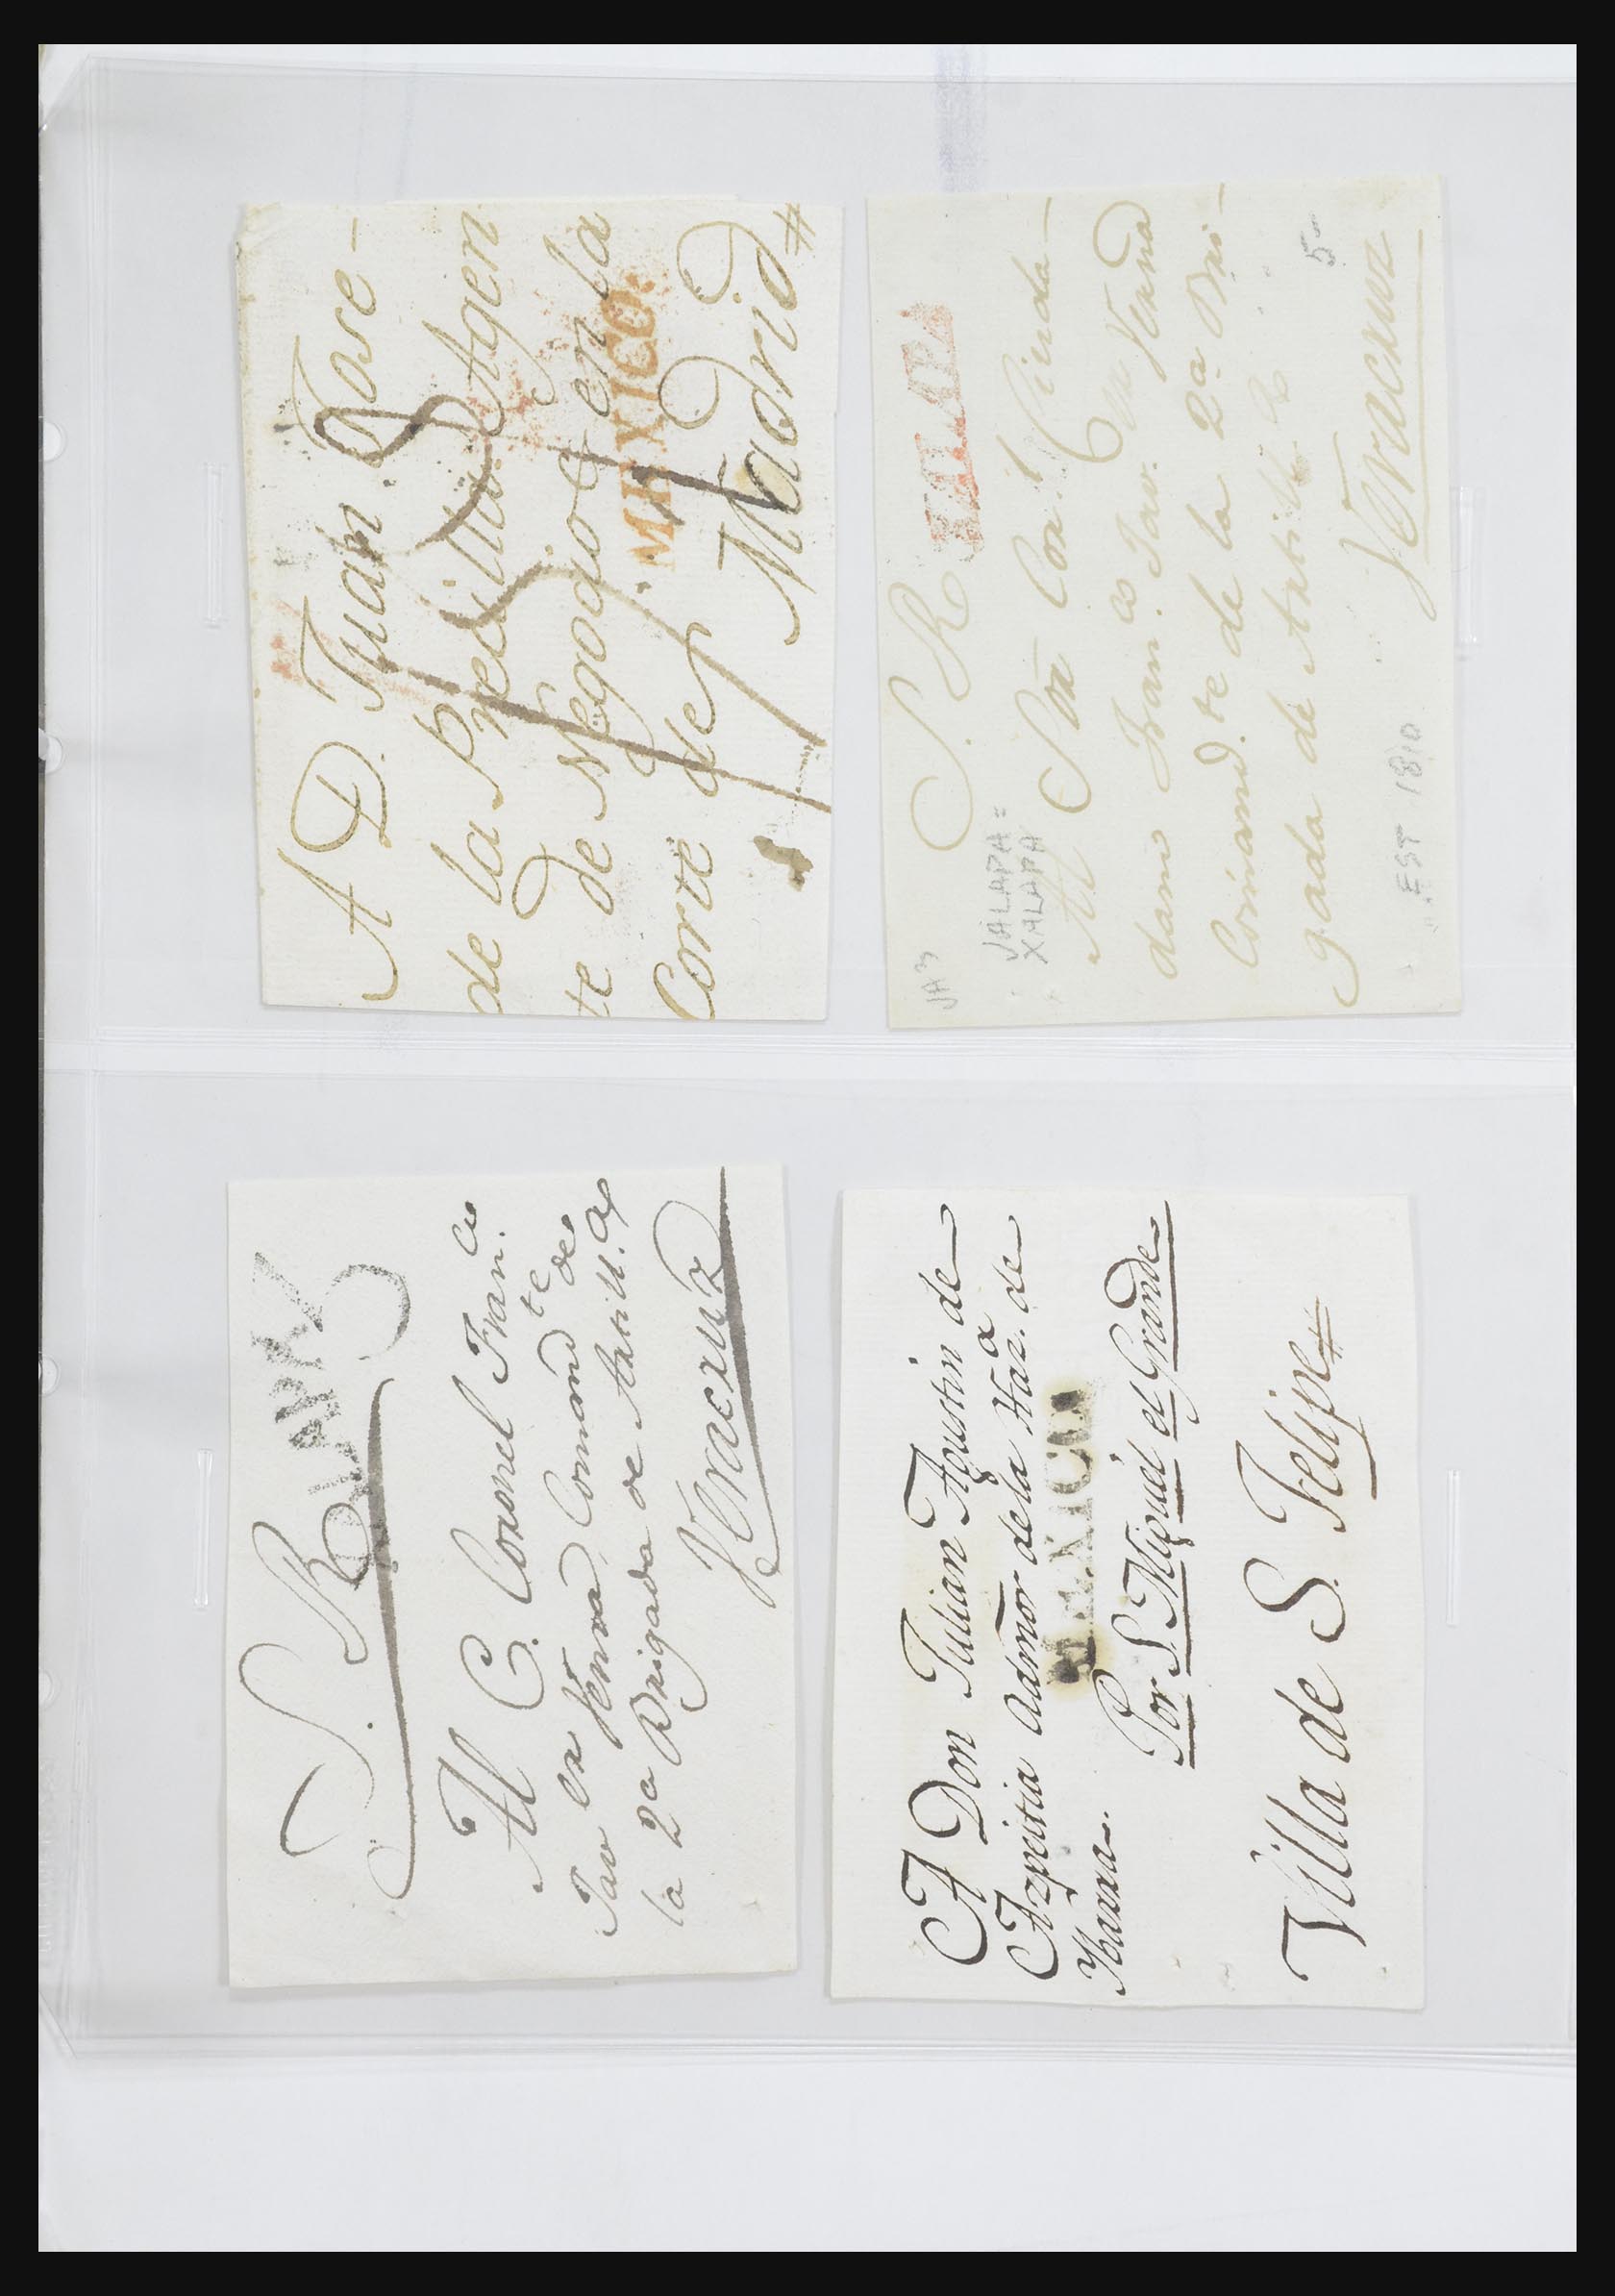 A D. Juan Jose
de la Predilla Agen
te de Negocios en la
MEXICO.
Corte de
Madrid
S. R.
XALAPA
JA3
JALAPA =
XALAPA
Al Cor.l Ciuda-
dano Fran.co Jav.
Comand.te de la 2a Bri-
gada de Artill.a
5-
Veracruz
EST 1810
S. R.
Al C. Coronel Fran.co
Jav Comand.te de
la 2a Brigada de Artill.a
Veracruz
A Don Julian Agustin de
Azpeitia Admor de la Haz.da de
Ibarra.
MEXICO.
Por S. Miguel el Grande
Villa de S. Felipe